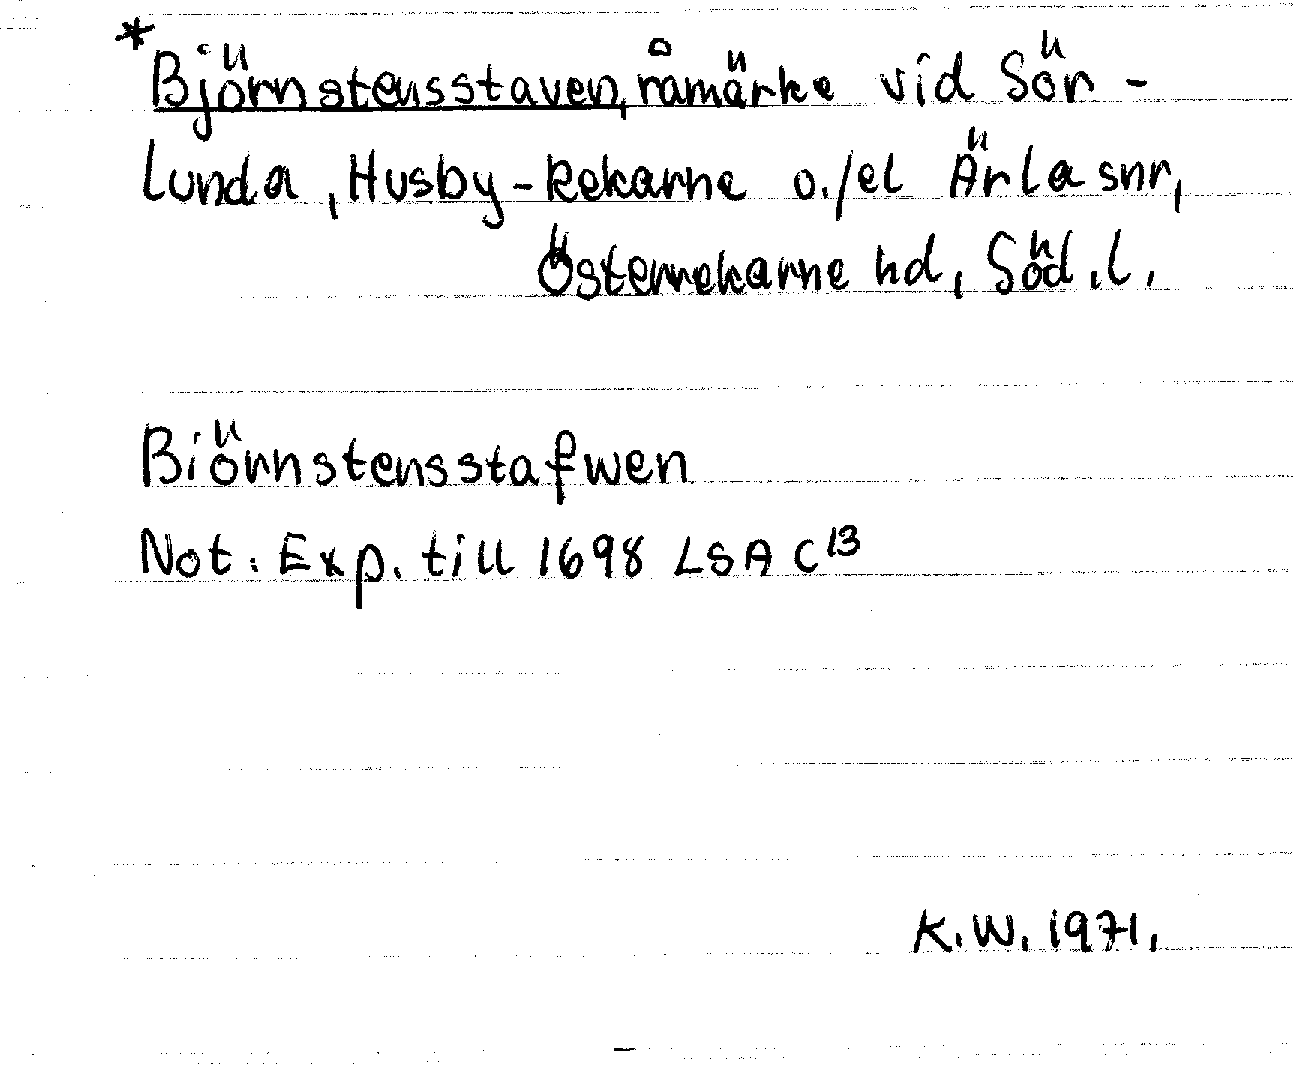 *Björnstensstaven, råmärke vid Sör-
lunda, Husby-Rekarne o./el Ärla snr,
Österrekarne hd, Söd.l.
Biörnstensstafwen
Not: Exp. till 1698 LSA C13
K.W. 1971.